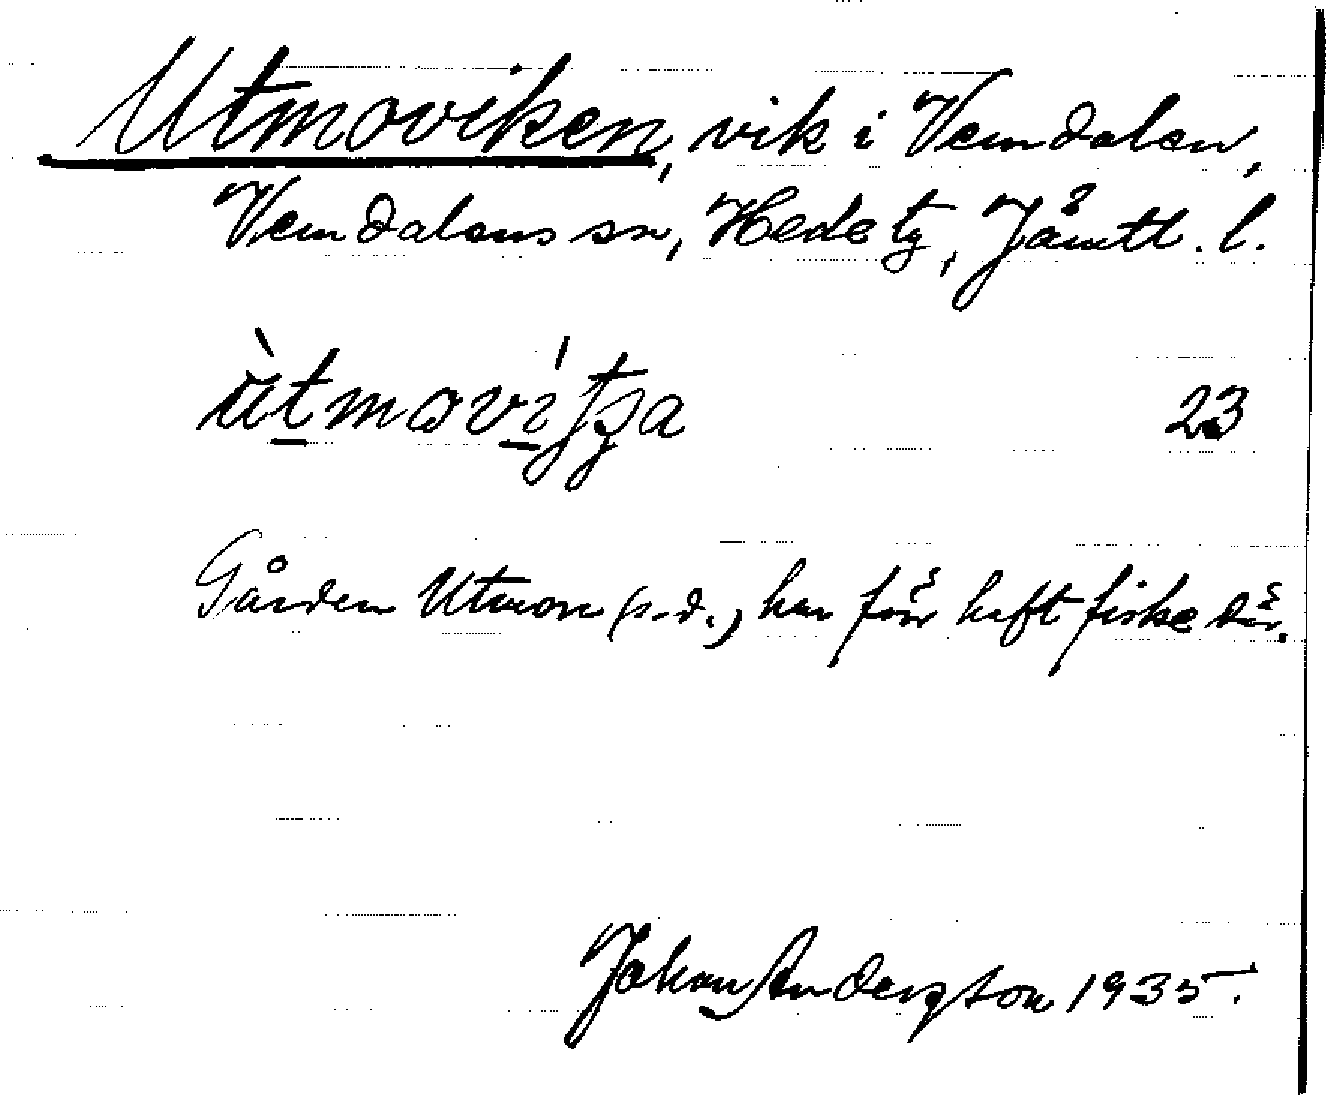 Utmoviken, vik i Vemdalen,
Vemdalens sn, Hede tg, Jämtl. l.
ùtmovíʃʒa 23
Gården Utmon (s.d.) har förr haft fiske där.
Johan Andersson 1935.